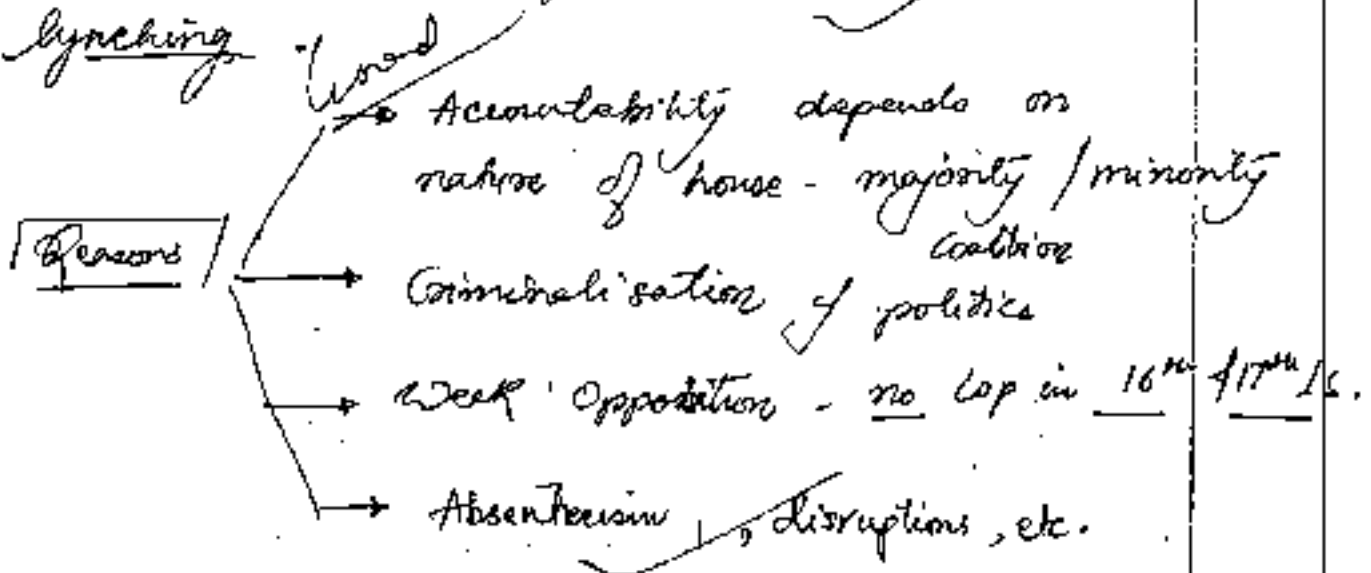 lynching
Good
Accountability depends on
nature of house - majority / minority
coalition
Reasons
Criminalisation of politics
Weak Opposition - no LoP in 16th & 17th LS.
Absenteeism, disruptions, etc.